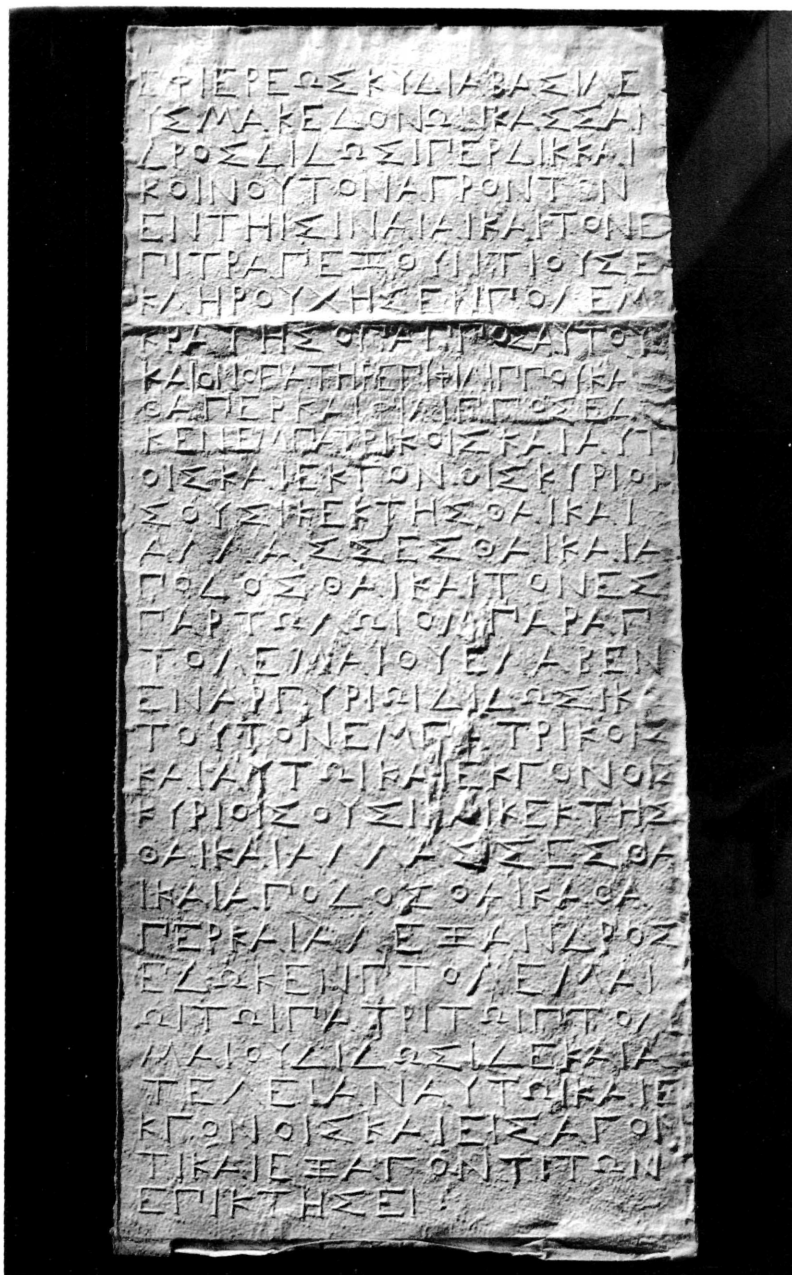 ΕΦΙΕΡΕΩΣΚΥΔΙΑΒΑΣΙΛΕ
ΥΣΜΑΚΕΔΟΝΩΝΚΑΣΣΑΝ
ΔΡΟΣΔΙΔΩΣΙΠΕΡΔΙΚΚΑΙ
ΚΟΙΝΟΥΤΟΝΑΓΡΟΝΤΟΝ
ΕΝΤΗΙΣΙΝΑΙΑΙΚΑΙΤΟΝΕ
ΠΙΤΡΑΠΕΖΟΥΝΤΙΟΥΣΕ
ΚΛΗΡΟΥΧΗΣΕΝΠΟΛΕΜΟ
ΚΡΑΤΗΣΟΠΑΠΠΟΣΑΥΤΟΥ
ΚΑΙΟΝΟΠΑΤΗΡΕΠΙΦΙΛΙΠΠΟΥΚΑ
ΘΑΠΕΡΚΑΙΦΙΛΙΠΠΟΣΕΔΩ
ΚΕΝΕΜΠΑΤΡΙΚΟΙΣΚΑΙΑΥΤ
ΟΙΣΚΑΙΕΚΓΟΝΟΙΣΚΥΡΙΟΙ
ΣΟΥΣΙΚΕΚΤΗΣΘΑΙΚΑΙ
ΑΛΛΑΣΣΕΣΘΑΙΚΑΙΑ
ΠΟΔΟΣΘΑΙΚΑΙΤΟΝΕΣ
ΠΑΡΤΩΛΩΙΟΜΠΑΡΑΠ
ΤΟΛΕΜΑΙΟΥΕΛΑΒΕΝ
ΕΝΑΡΓΥΡΙΩΙΔΙΔΩΣΙΚΑ
ΤΟΥΤΟΝΕΜΠΑΤΡΙΚΟΙΣ
ΚΑΙΑΥΤΩΙΚΑΙΕΚΓΟΝΟΙΣ
ΚΥΡΙΟΙΣΟΥΣΙΚΑΙΚΕΚΤΗΣ
ΘΑΙΚΑΙΑΛΛΑΣΣΕΣΘΑ
ΙΚΑΙΑΠΟΔΟΣΘΑΙΚΑΘΑ
ΠΕΡΚΑΙΑΛΕΞΑΝΔΡΟΣ
ΕΔΩΚΕΝΠΤΟΛΕΜΑΙ
ΩΙΤΩΙΠΑΤΡΙΤΩΙΠΤΟΛΕ
ΜΑΙΟΥΔΙΔΩΣΙΔΕΚΑΙΑ
ΤΕΛΕΙΑΝΑΥΤΩΙΚΑΙΕ
ΚΓΟΝΟΙΣΚΑΙΕΙΣΑΓΟΝ
ΤΙΚΑΙΕΞΑΓΟΝΤΙΤΩΝ
ΕΠΙΚΤΗΣΕΙ